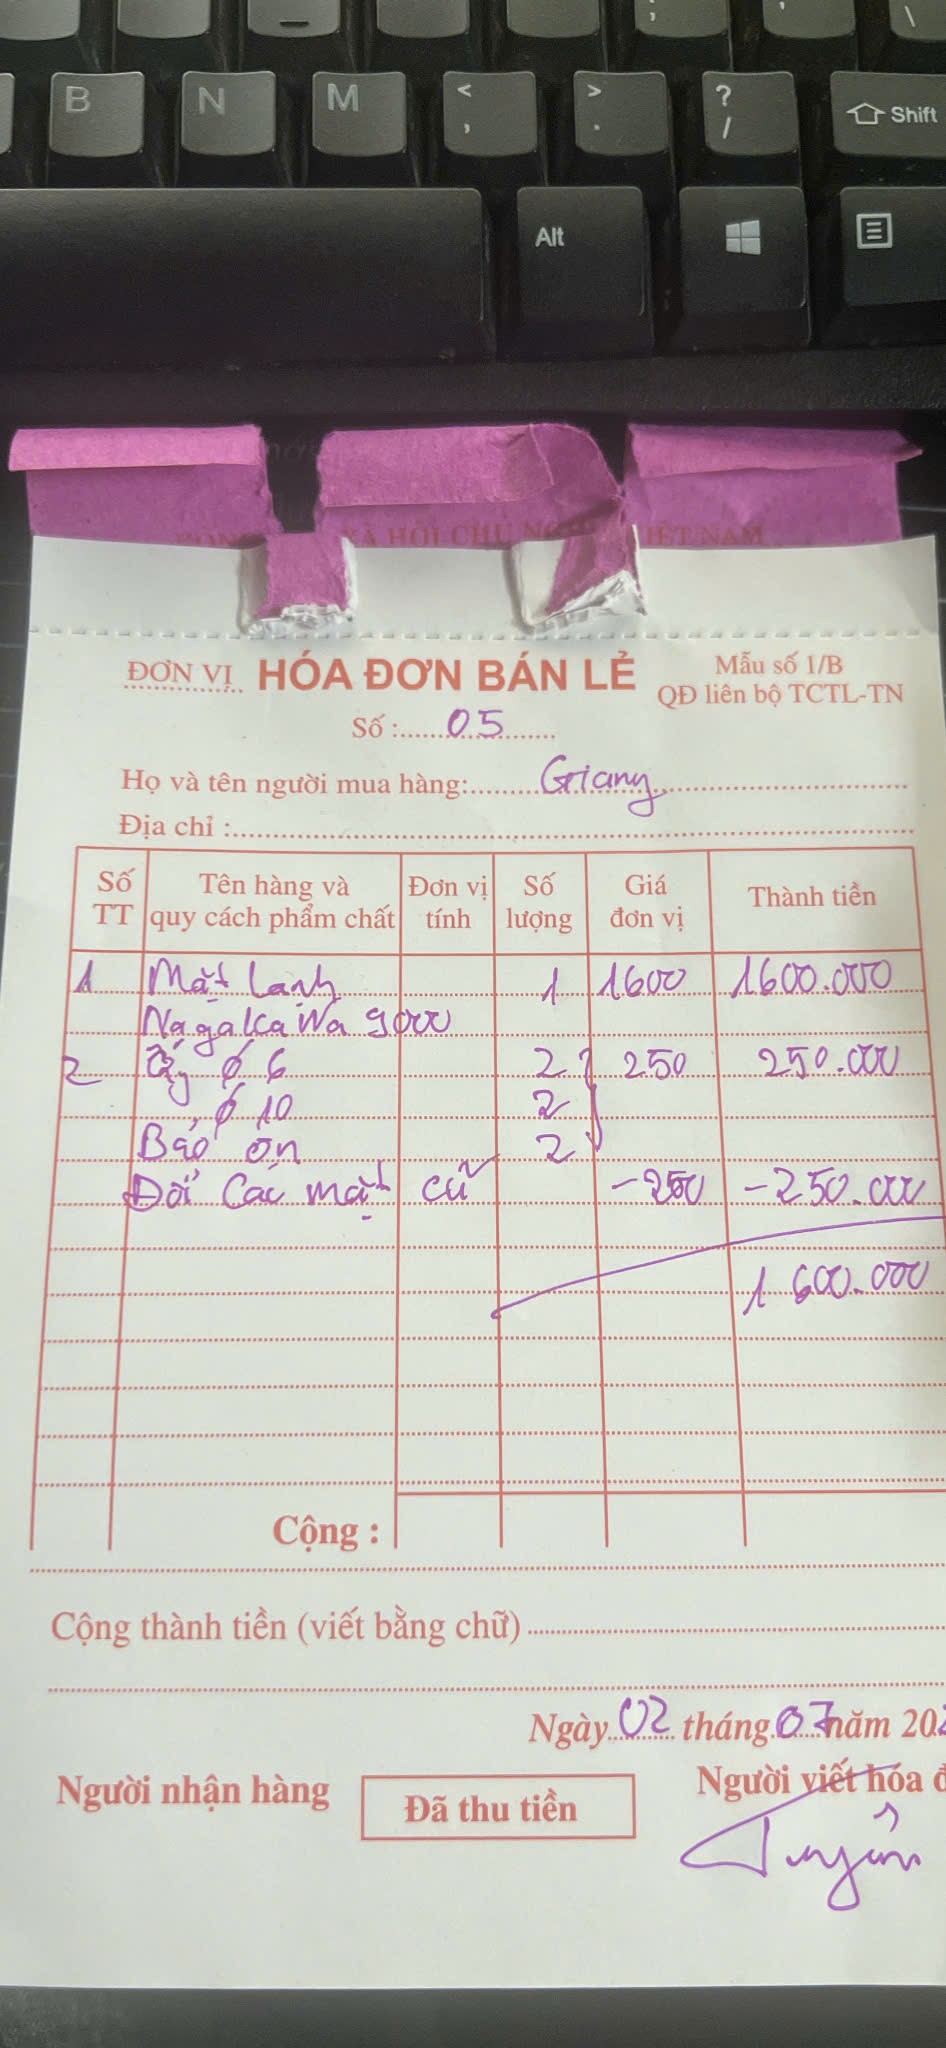 B N M < , > . ? / Shift
Alt
CỘNG XÃ HỘI CHỦ NGHĨA VIỆT NAM
ĐƠN VỊ HÓA ĐƠN BÁN LẺ Mẫu số 1/B
QĐ liên bộ TCTL-TN
Số : 05
Họ và tên người mua hàng: Giang
Địa chỉ :
Số TT Tên hàng và quy cách phẩm chất Đơn vị tính Số lượng Giá đơn vị Thành tiền
1 Mặt lạnh 1 1600 1600.000
Nagakawa 9000
2 ϕ 6 2 250 250.000
ϕ 10 2
Bảo ôn 2
Đổi Các mặt cũ -250 -250.000
1 600.000
Cộng :
Cộng thành tiền (viết bằng chữ)
Ngày 02 tháng 07 năm 202
Người nhận hàng Đã thu tiền Người viết hóa đ